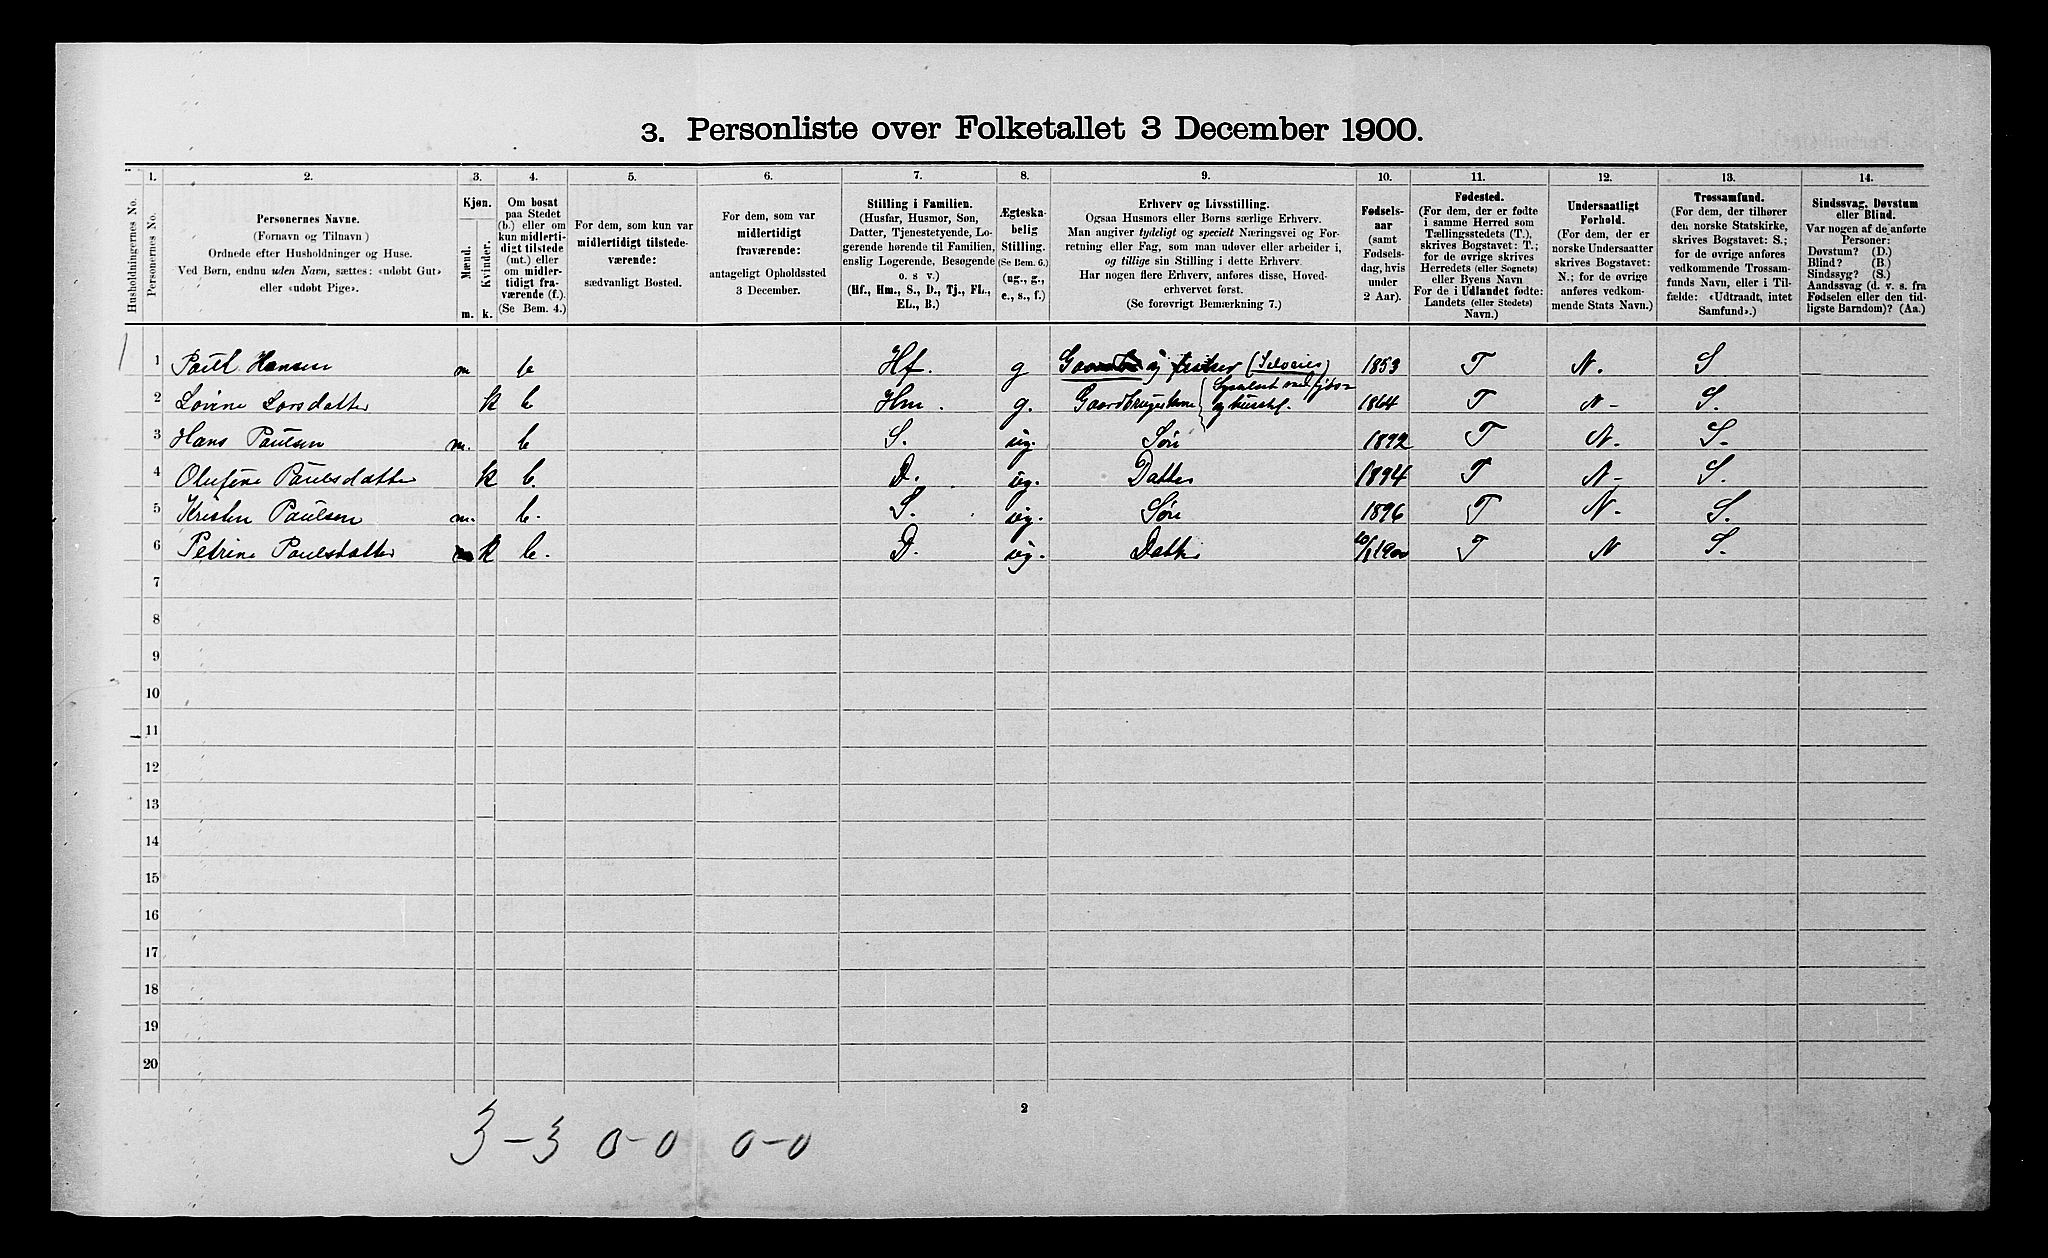 3. Personliste over Folketallet 3 December 1900.
1. 2. 3. 4. 5. 6. 7. 8. 9. 10. 11. 12. 13. 14.
Husholdningernes No.
Personernes No.
Personernes Navne.
(Fornavn og Tilnavn)
Ordnede efter Husholdninger og Huse.
Ved Børn, endnu uden Navn, sættes: «udøbt Gut»
eller «udøbt Pige».
Kjøn.
Mænd.
Kvinder.
m. k.
Om bosat
paa Stedet
(b.) eller om
kun midlerti-
digt tilstede
(mt.) eller
om midler-
tidigt fra-
værende (f.).
(Se Bem. 4.)
For dem, som kun var
midlertidigt tilstede-
værende:
sædvanligt Bosted.
For dem, som var
midlertidigt
fraværende:
antageligt Opholdssted
3 December.
Stilling i Familien.
(Husfar, Husmor, Søn,
Datter, Tjenestetyende, Lo-
gerende hørende til Familien,
enslig Logerende, Besøgende
o. s v.)
(Hf., Hm., S., D., Tj., FL.,
EL., B.)
Ægteska-
belig
Stilling.
(Se Bem. 6.)
(ug., g.,
e., s., f.)
Erhverv og Livsstilling.
Ogsaa Husmors eller Børns særlige Erhverv.
Man angiver tydeligt og specielt Næringsvei og For-
retning eller Fag, som man udøver eller arbeider i,
og tillige sin Stilling i dette Erhverv.
Har nogen flere Erhverv, anføres disse, Hoved-
erhvervet først.
(Se forøvrigt Bemærkning 7.)
Fødsels-
aar
(samt
Fødsels-
dag, hvis
under
2 Aar).
Fødested.
(For dem, der er fødte
i samme Herred som
Tællingsstedets (T.),
skrives Bogstavet: T.;
for de øvrige skrives
Herredets (eller Sognets)
eller Byens Navn
For de i Udlandet fødte:
Landets (eller Stedets)
Navn.)
Undersaatligt
Forhold.
(For dem, der er
norske Undersaatter
skrives Bogstavet:
N.; for de øvrige
anføres vedkom-
mende Stats Navn.)
Trossamfund.
(For dem, der tilhører
den norske Statskirke,
skrives Bogstavet: S.;
for de øvrige anføres
vedkommende Trossam-
funds Navn, eller i Til-
fælde: «Udtraadt, intet
Samfund».)
Sindssvag, Døvstum
eller Blind.
Var nogen af de anførte
Personer:
Døvstum? (D.)
Blind? (B.)
Sindssyg? (S.)
Aandssvag (d. v. s. fra
Fødselen eller den tid-
ligste Barndom)? (Aa.)
1 1 Paul Hansen m b Hf. g og fisker (Selveier) 1853 T N. S
2 Lovine Larsdatter k b Hm. g. Gaardbrugerkone 1864 T N- S.
3 Hans Paulsen m. b S. ug. Søn 1892 T N. S.
4 Olufine Paulsdatter k b. D. ug. Datter 1894 T N- S.
5 Kristen Paulsen m. b. S. ug. Søn 1896 T N. S.
6 Petrine Paulsdatter k b. D. ug. Datter T N S.
7
8
9
10
11
12
13
14
15
16
17
18
19
20
2
3-3 0-0 0-0